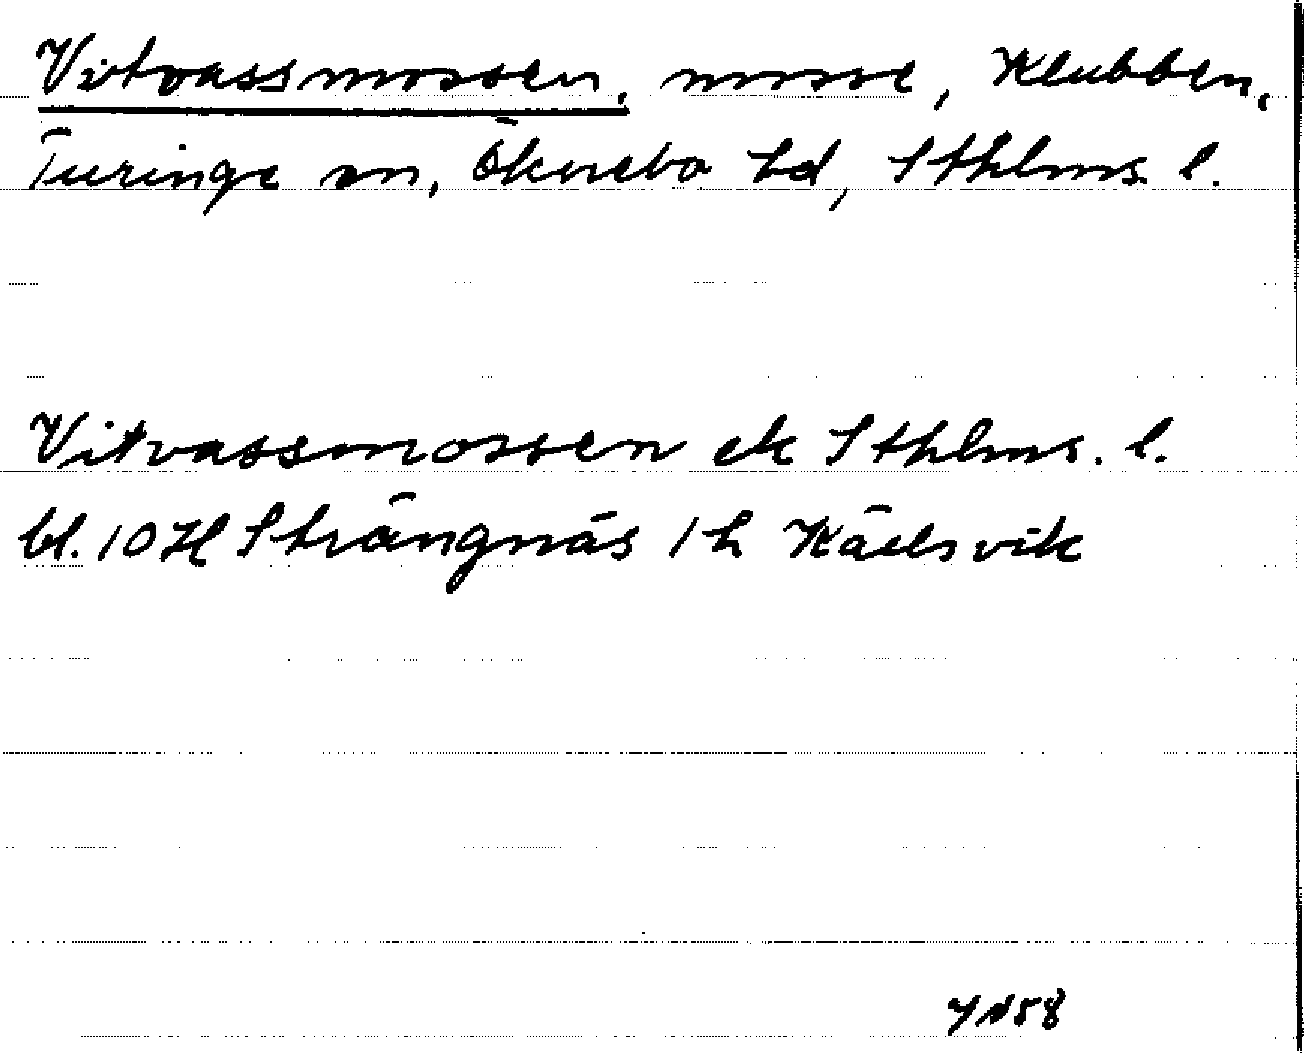 Vitvassmossen, mosse, Klubben,
Turinge sn, Öknebo hd, Sthlms. l.
Vitvassmossen ek Sthlms. l.
bl. 10 H Strängnäs 1 h Kälsvik